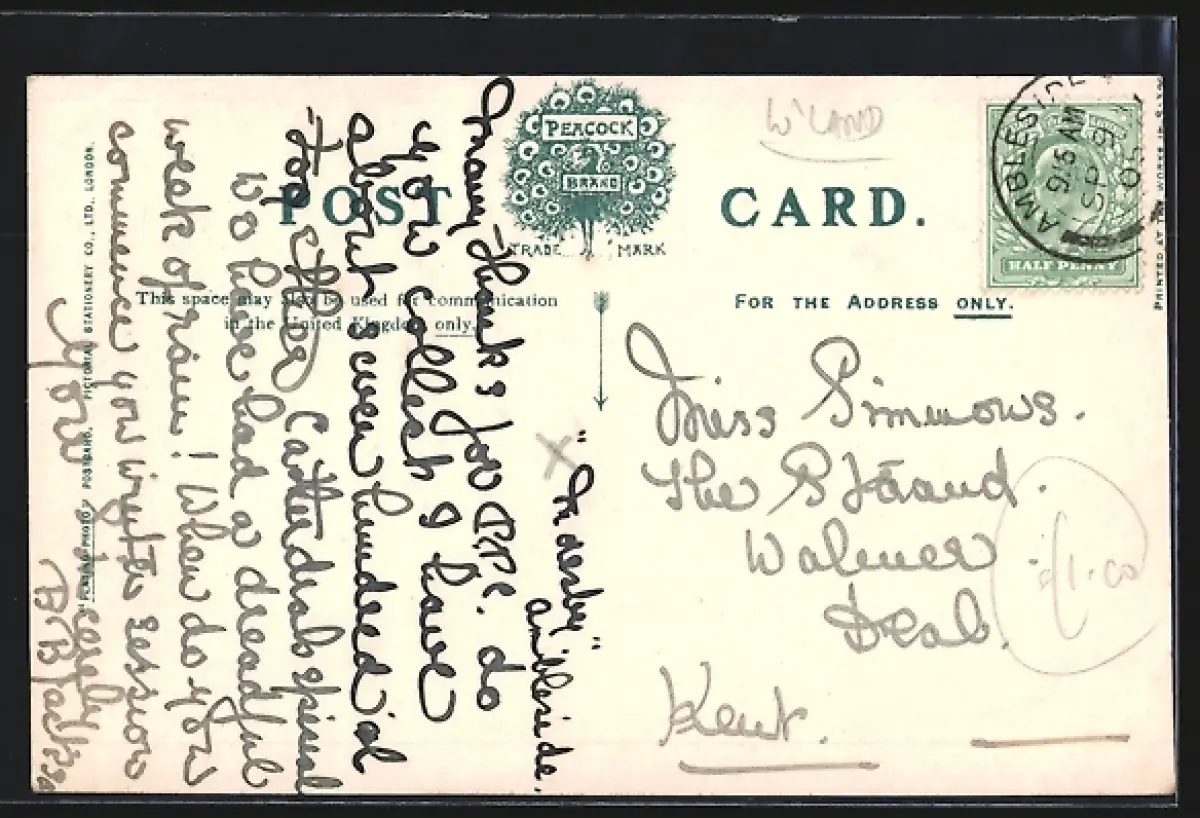 POST CARD.
PEACOCK
BRAND
TRADE MARK
This space may also be used for communication
in the United Kingdom only.
FOR THE ADDRESS ONLY.
W'LAND
AMBLESIDE
9 15 AM
SP 9
05
HALF PENNY
PRINTED AT THE WORKS IN
PICTORIAL STATIONERY CO., LTD., LONDON.
POSTCARD.
Ambleside.
Many Thanks for P.P.C. do
you collect I have
about seven hundred al
Cathedrals
We have had a dreadful
week of rain! When do you
commence you winter session
Yours sincerely
B
Miss Simmons.
The Strand.
Walmer
Deal.
Kent.
£1.00